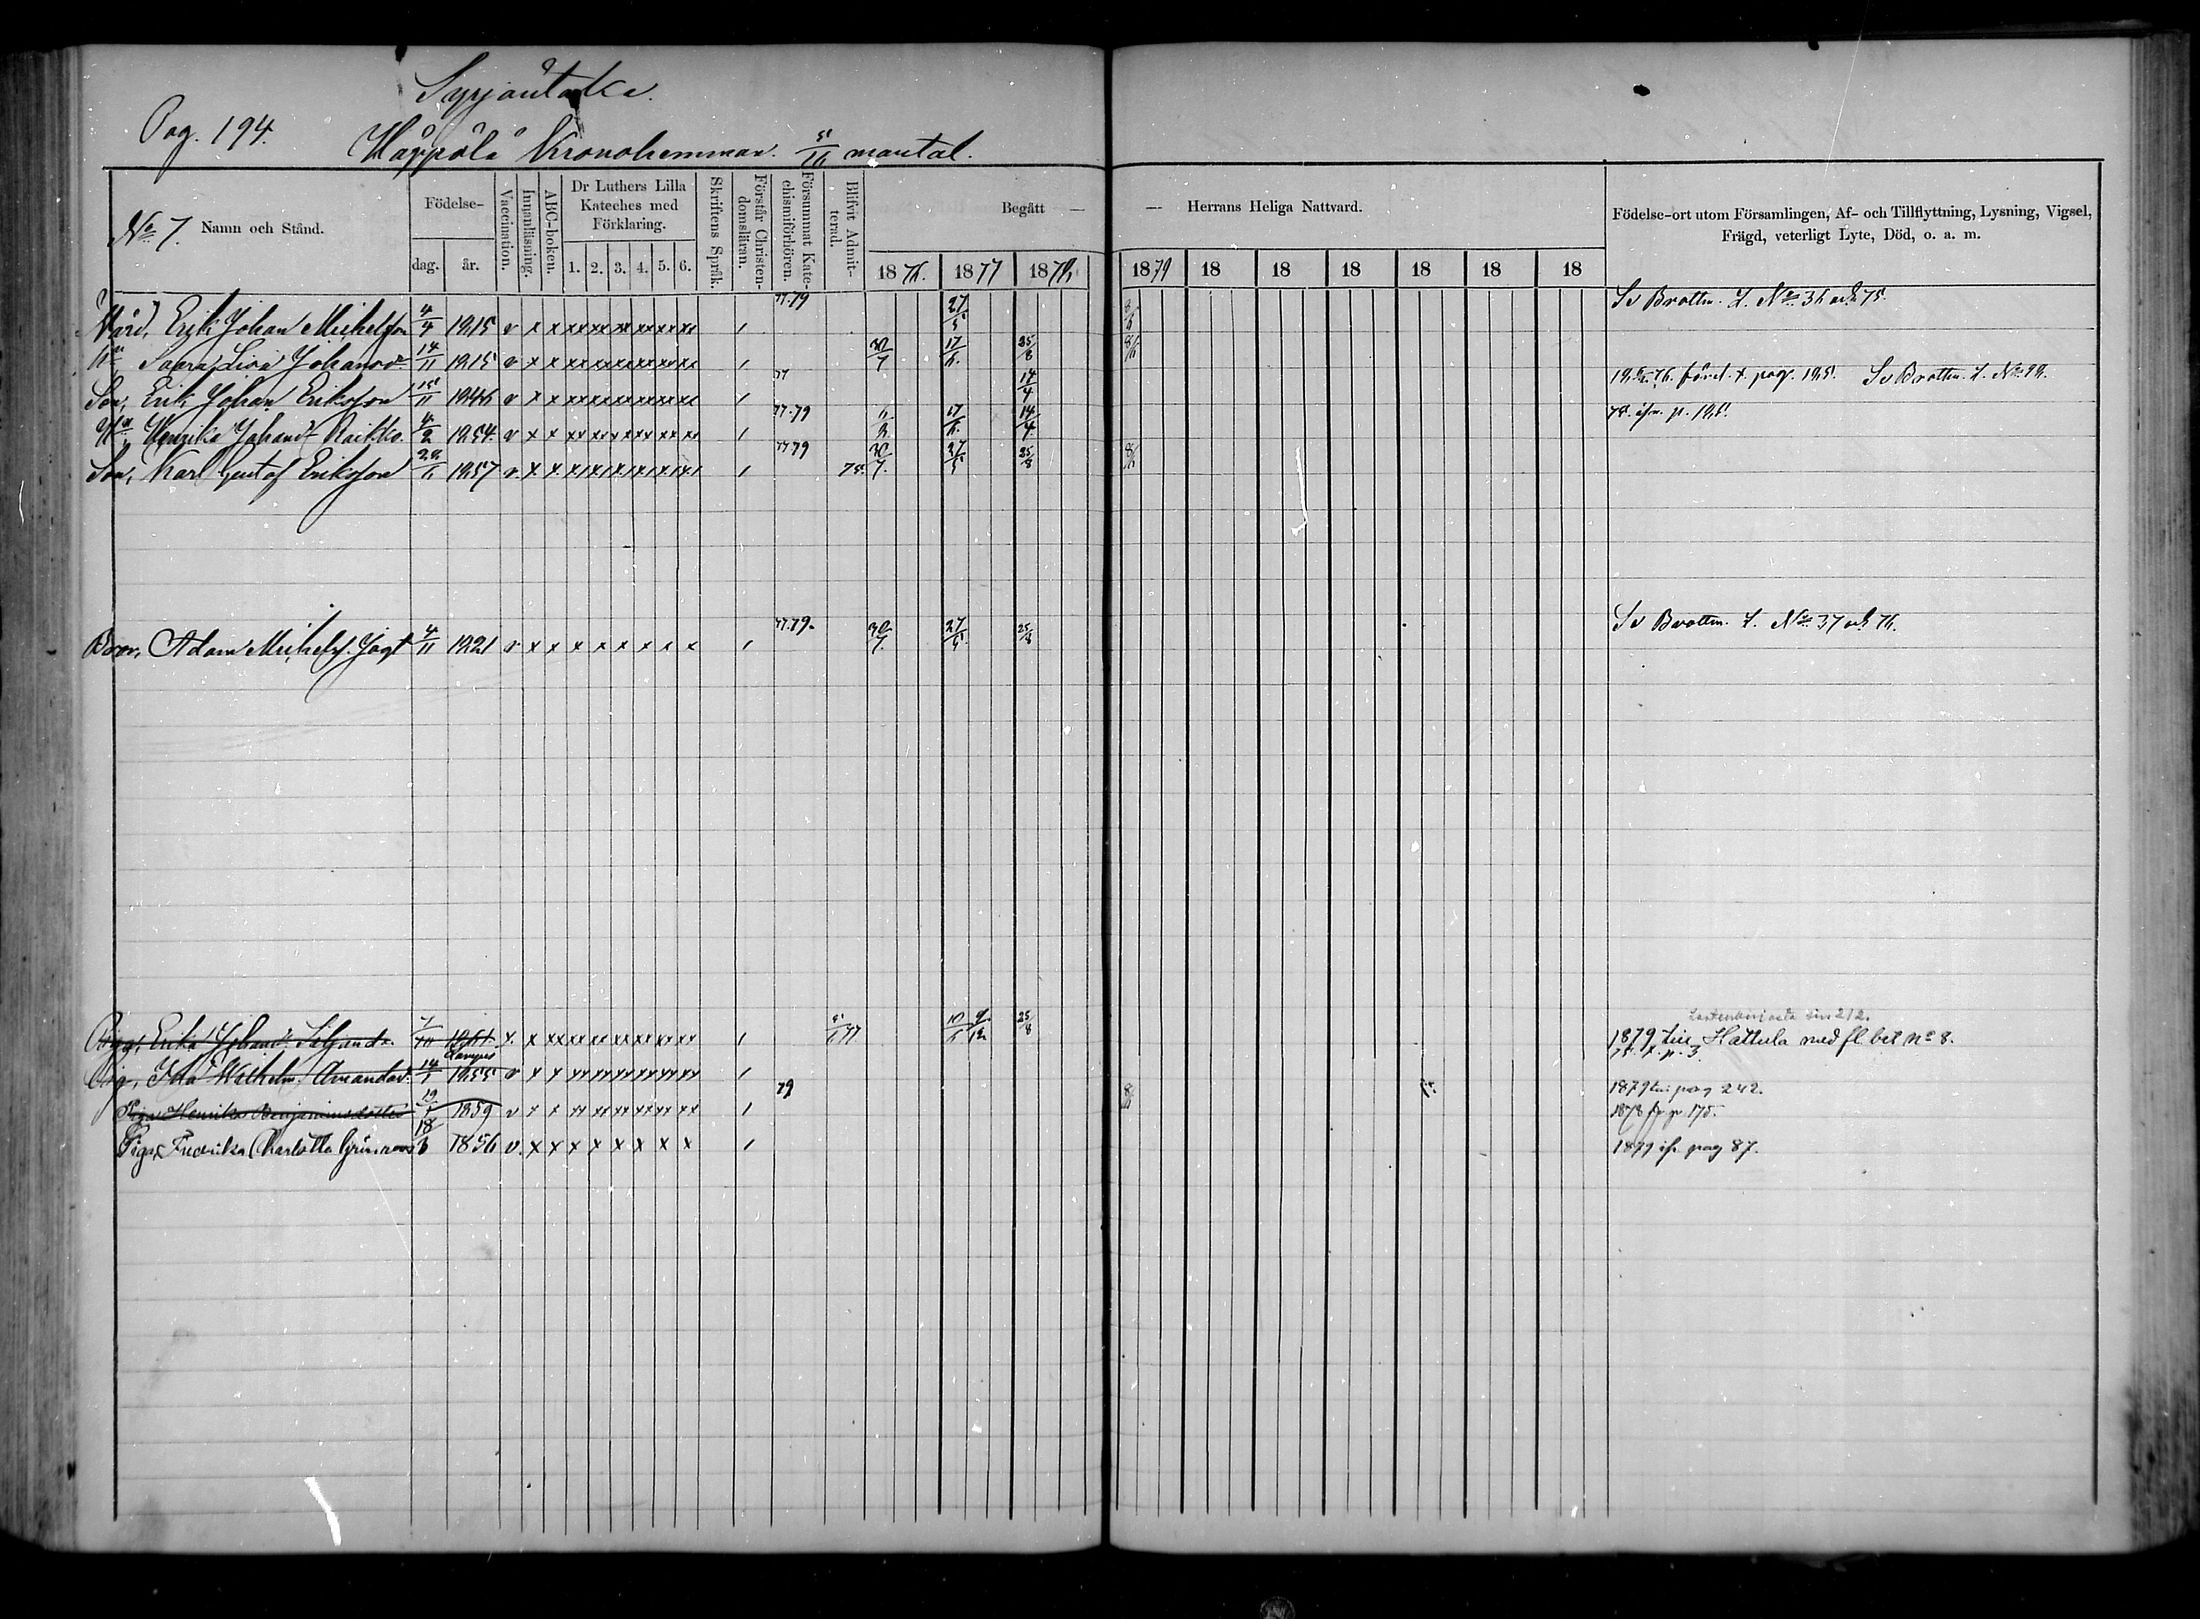 Syrjäntaka.
Pag. 194.
Häppölä Kronohemman. 5/16 mantal.
No 7. Namn och Stånd.
Födelse-
dag. år.
Vaccination.
Innanläsning.
ABC-boken.
Dr Luthers Lilla Kateches med Förklaring.
1. 2. 3. 4. 5. 6.
Skriftens Språk.
Förstår Christendomsläran.
Försummat Katechismiförhören.
Blifvit Admitterad.
Begått — — Herrans Heliga Nattvard.
1876. 1877 1878. 1879 18 18 18 18 18 18
Födelse-ort utom Församlingen, Af- och Tillflyttning, Lysning, Vigsel,
Frägd, veterligt Lyte, Död, o. a. m.
Värd, Erik Johan Michelsson 4/4 1815 v x x xx xx xx xx xx xx / 77.79 27/5 8/6 Se Brottm. L. No 36 och 75.
Hu Saara Lisa Johansdr 14/11 1815 v x x xx xx xx xx xx xx / 30/7 17/6. 25/8 8/6
Son, Erik Johan Eriksson /11 1846 v x x xx xx xx xx xx xx / 77 14/4 76. pag. 195. Se Brottm. L. No
Hu Henrika Johansdr 4/2 1854 v x x xx xx xx xx xx xx / 77.79 17/6. 14/4 78. ifr. p. 195.
Son, Karl Gustaf Eriksson /11 1857 v. x x xx xx xx xx xx xx / 77 79 75. 30/7. 27/5 25/8 8/6
Bror, Adam Michelss. Jägt 4/11 1821 v x x x x x x x x / 77.79. 30/7. 27/5 25/8 Se Brottm. L. No 37 och 76.
Pig, Erika Johansdr 7/10 1861 x. x x xx xx xx xx xx xx / 77 10/6 25/8 1879 till Hattula med fl bet No 8.
Pig, Ida Wilhelm. Amandadr. 14/ 1855 v x x xx xx xx xx xx xx / 78. p. 3.
79 8/6 1879 till pag 242.
Piga Henrika Benjaminsdotter 19/ 1859 v x x xx xx xx xx xx xx / 1878 fr p 175.
Piga, Fredrika Charlotta Grönroos 18/3 1856 v. x x x x x x x x / 1879 ifr. pag 87.